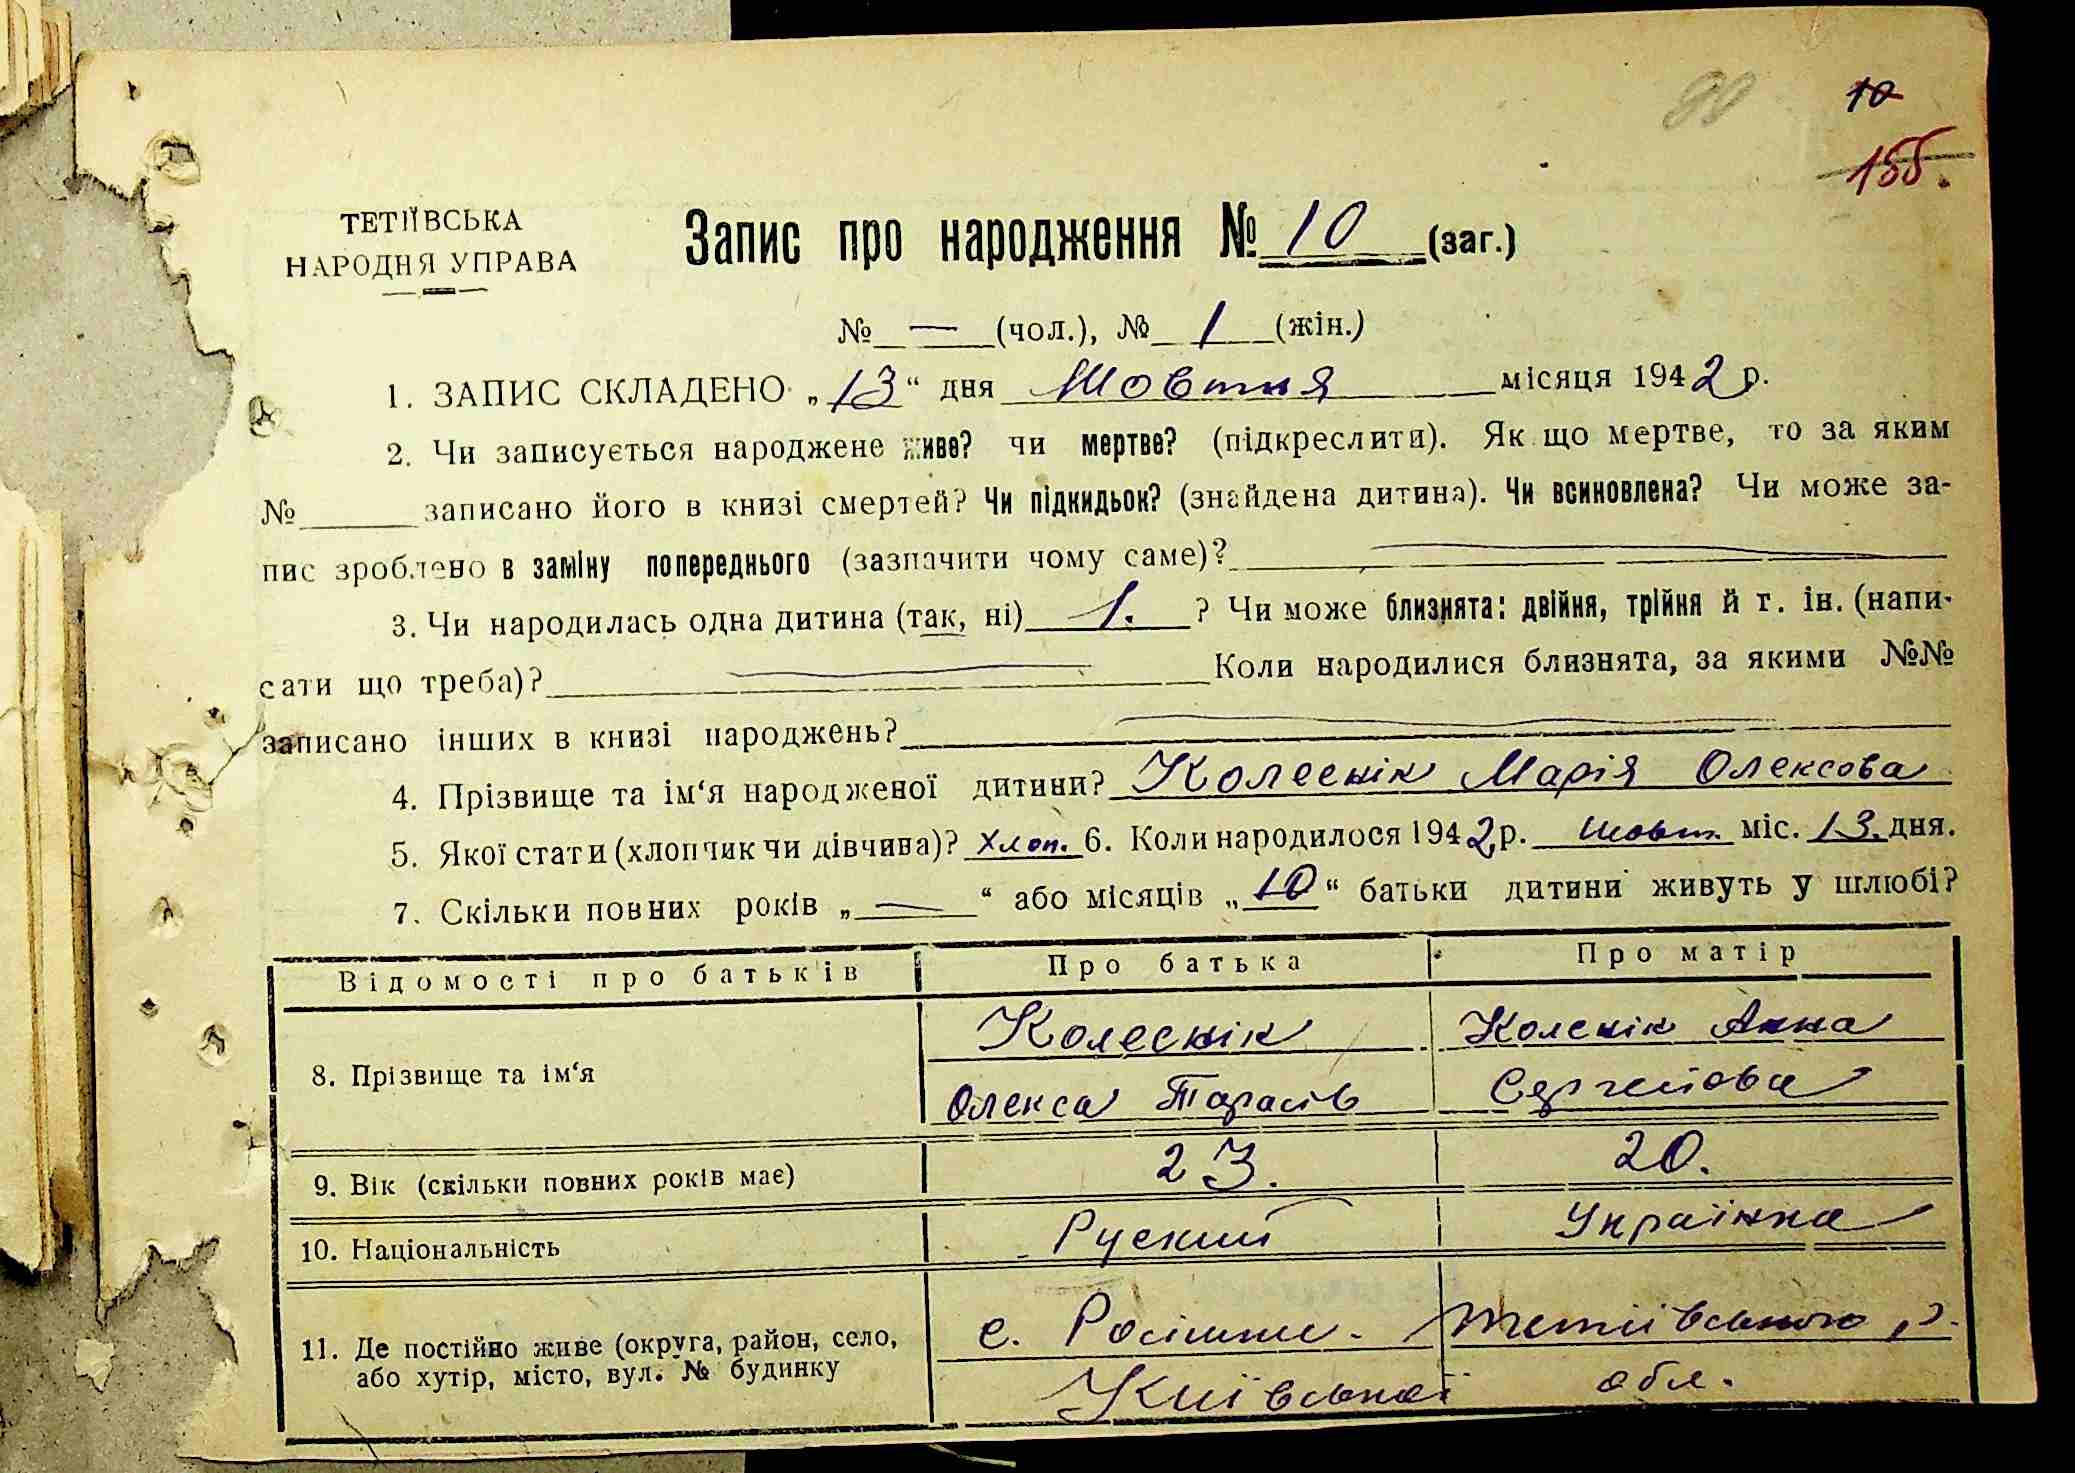 10
155.
ТЕТІЇВСЬКА
НАРОДНЯ УПРАВА
Запис про народження № 10 (заг.)
№ — (чол.), № 1 (жін.)
1. ЗАПИС СКЛАДЕНО „13“ дня Шовтня місяця 1942 р.
2. Чи записується народжене живе? чи мертве? (підкреслити). Як що мертве, то за яким
№ записано його в книзі смертей? Чи підкидьок? (знайдена дитина). Чи всиновлена? Чи може за-
пис зроблено в заміну попереднього (зазначити чому саме)?
3. Чи народилась одна дитина (так, ні) 1. ? Чи може близнята: двійня, трійня й т. ін. (напи-
сати що треба)? Коли народилися близнята, за якими №№
записано інших в книзі народжень?
4. Прізвище та ім‘я народженої дитини? Колеснік Марія Олексова
5. Якої стати (хлопчик чи дівчина)? Хлоп. 6. Коли народилося 1942 р. Шовт. міс. 13. дня.
7. Скільки повних років „ — “ або місяців „10“ батьки дитини живуть у шлюбі?
Відомості про батьків Про батька Про матір
8. Прізвище та ім‘я Колеснік Колснік Анна
Олекса Тарасів Сергейова
9. Вік (скільки повних років має) 23. 20.
10. Національність Руский Українка
11. Де постійно живе (округа, район, село, с. Росішки. Тетіївського р.
або хутір, місто, вул. № будинку Київської обл.